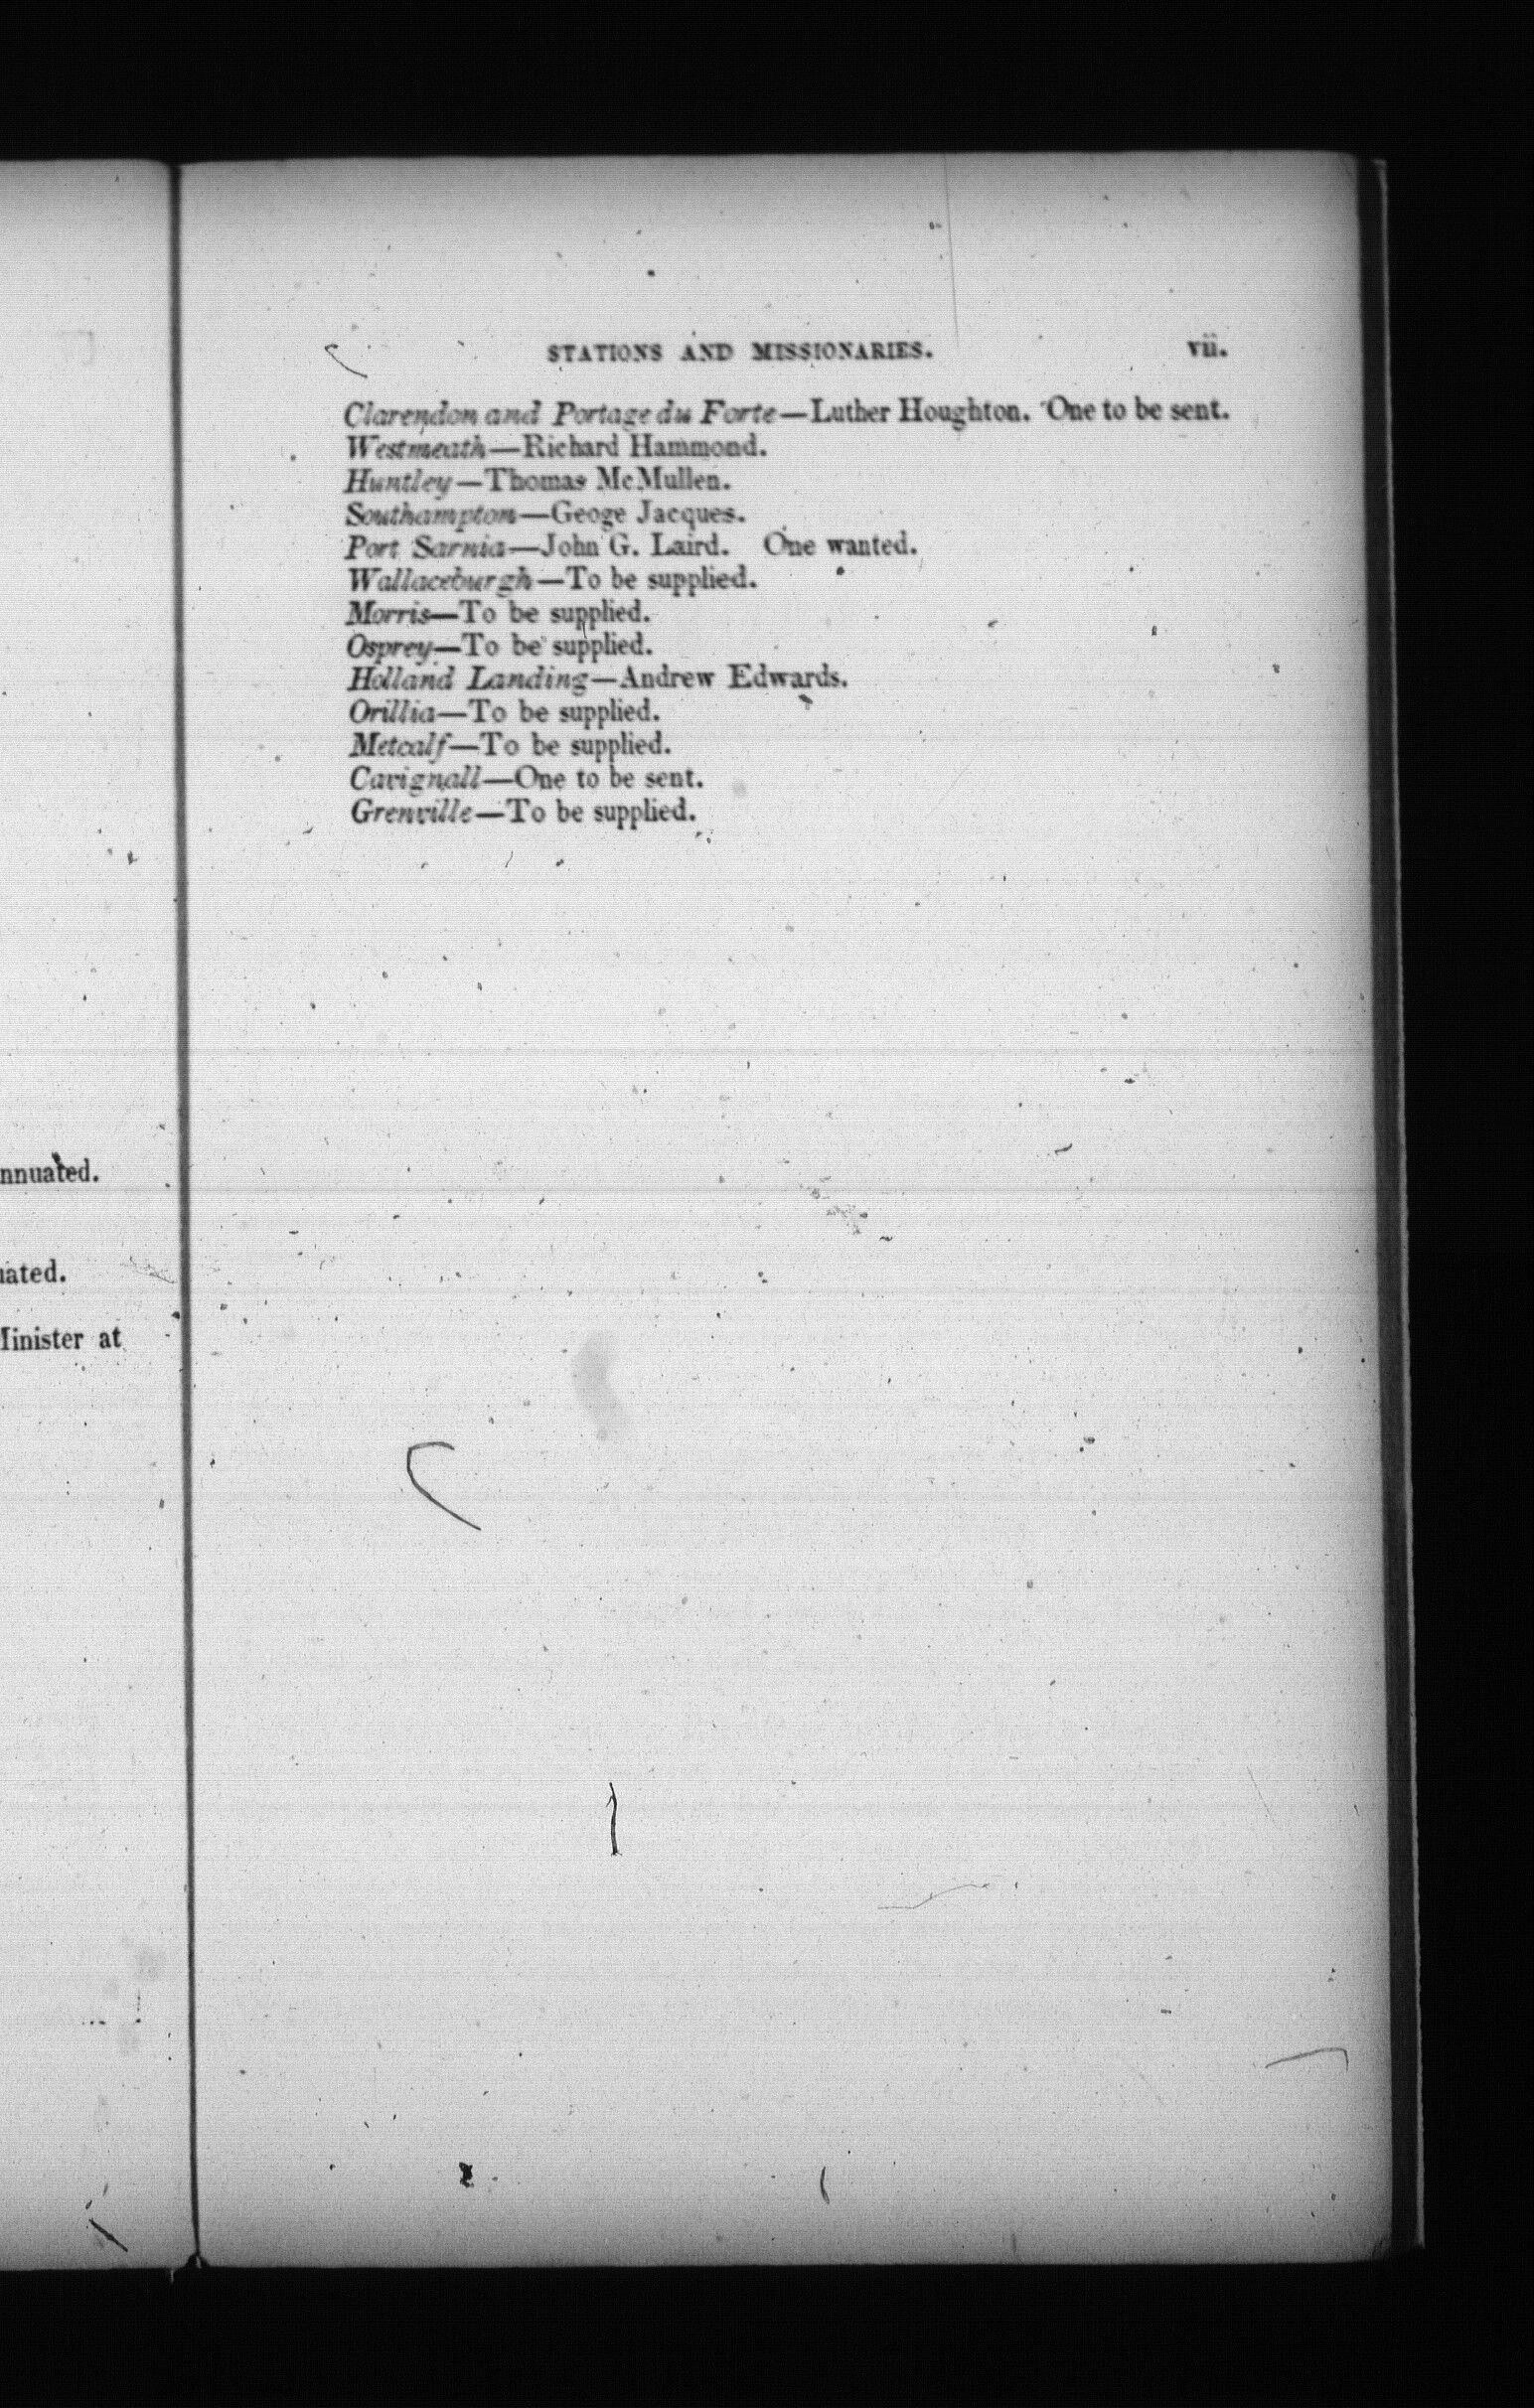 nnuated.
uated.
Minister at
STATIONS AND MISSIONARIES. vii.
Clarendon and Portage du Forte—Luther Houghton. One to be sent.
Westmeath—Richard Hammond.
Huntley—Thomas McMullen.
Southampton—Geoge Jacques.
Port Sarnia—John G. Laird. One wanted.
Wallaceburgh—To be supplied.
Morris—To be supplied.
Osprey—To be supplied.
Holland Landing—Andrew Edwards.
Orillia—To be supplied.
Metcalf—To be supplied.
Cavignall—One to be sent.
Grenville—To be supplied.